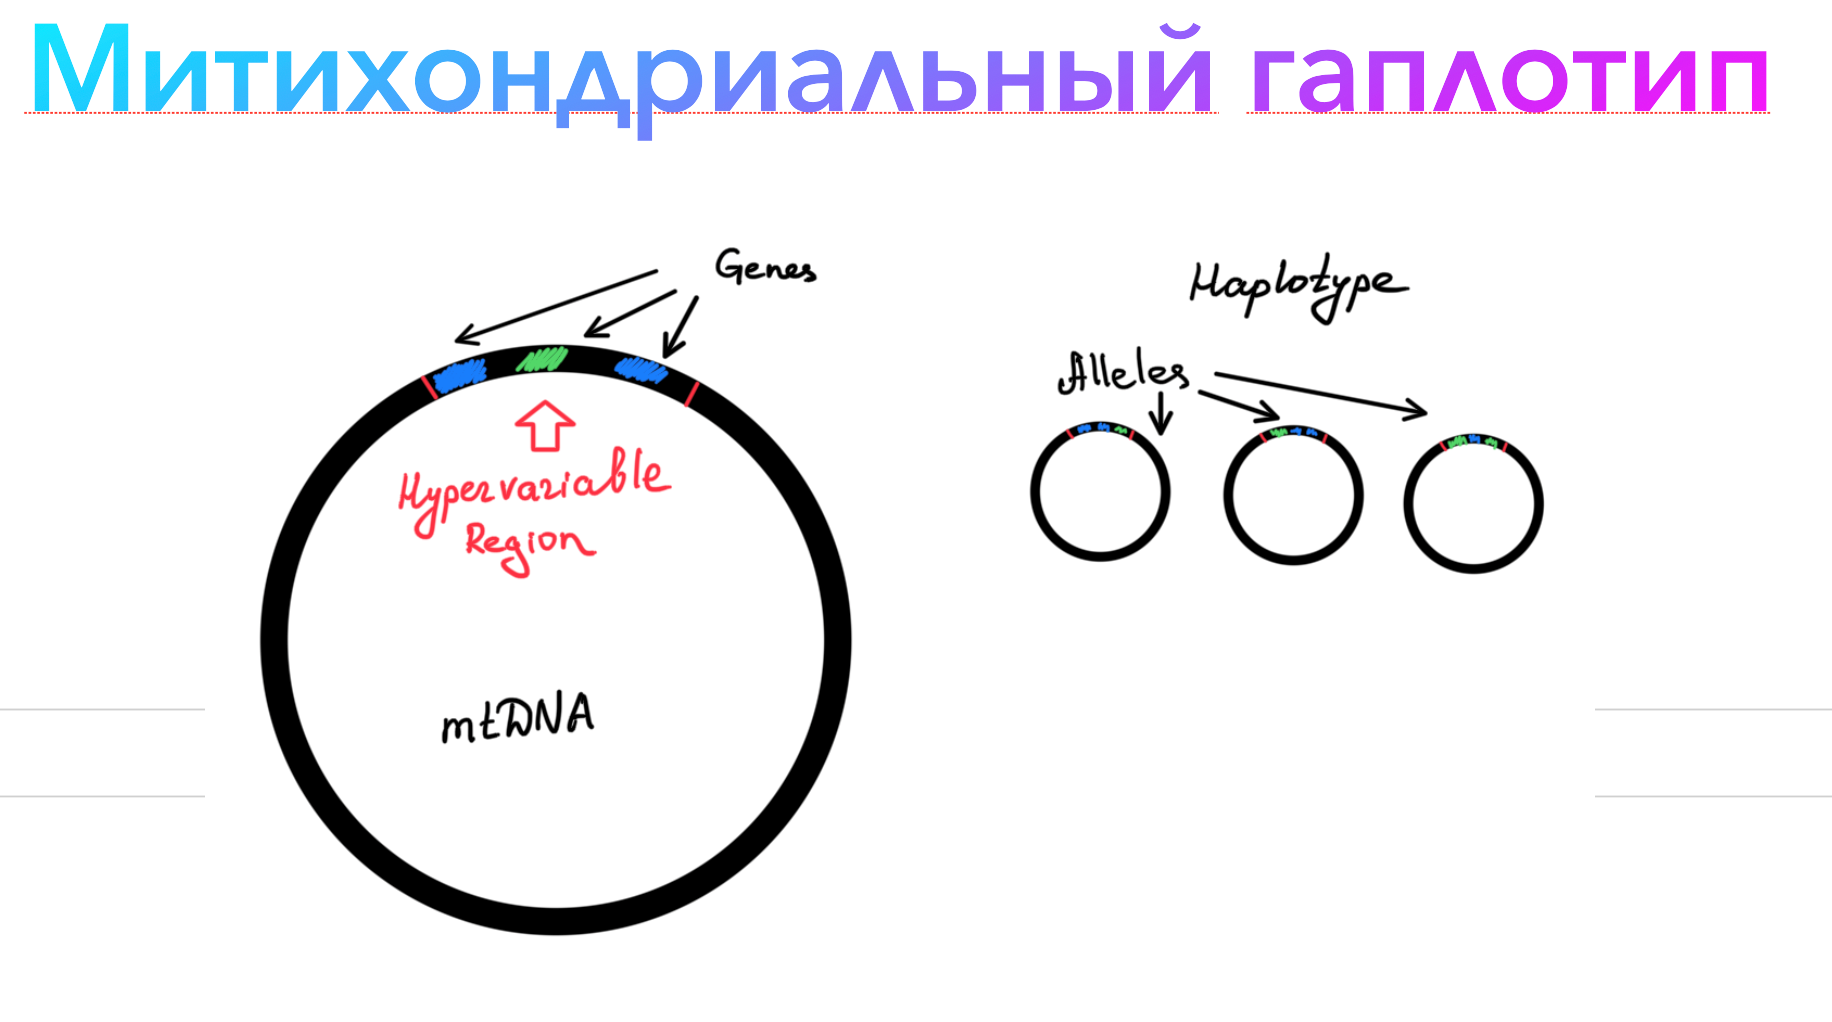 Митихондриальный гаплотип
Genes
Hypervariable
Region
mtDNA
Haplotype
Alleles